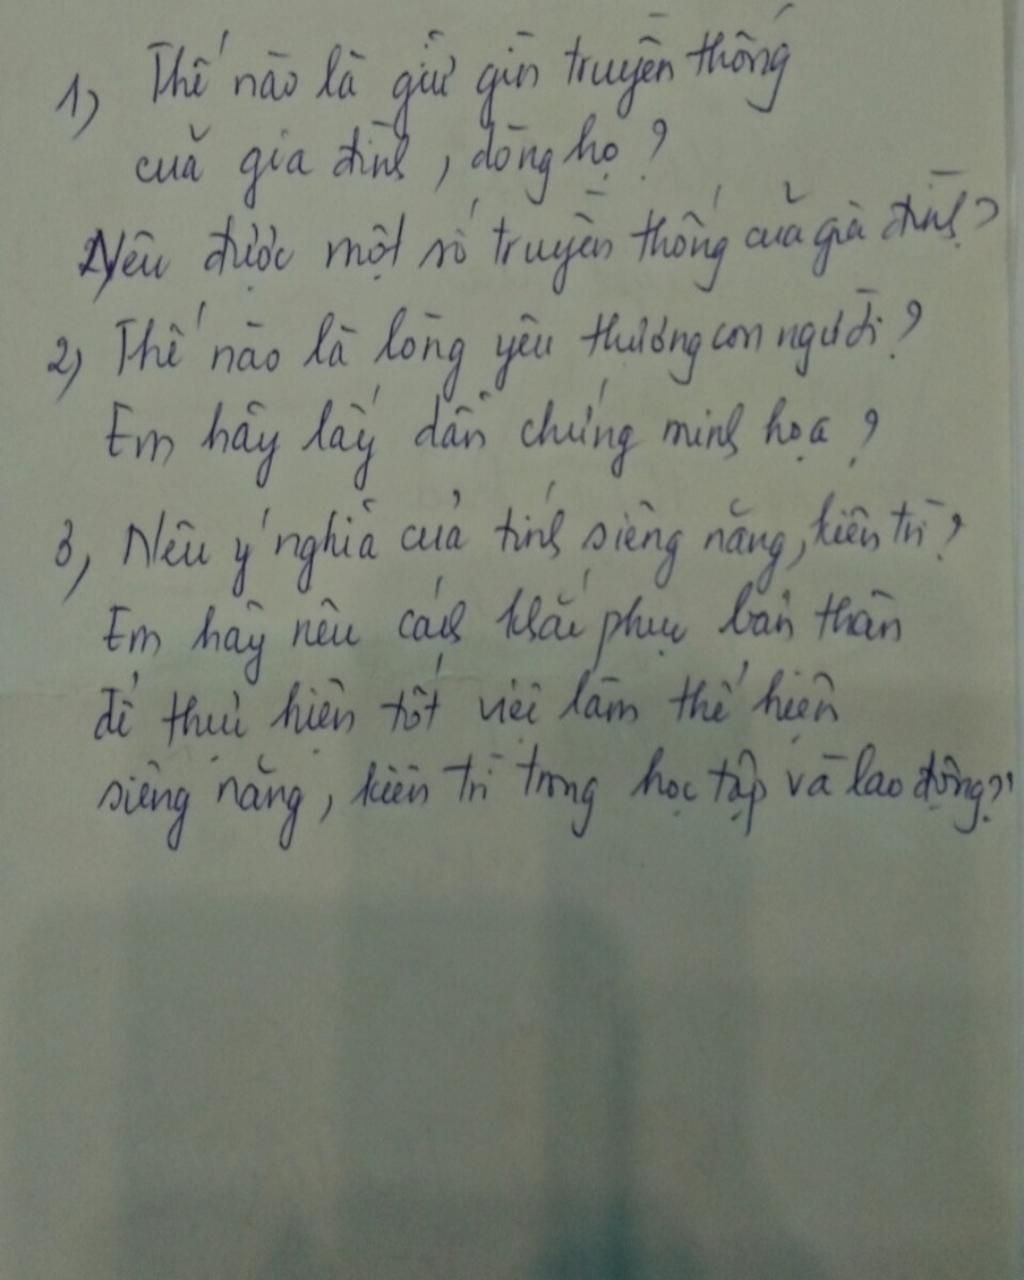 1) Thế nào là giữ gìn truyền thống
của gia đình, dòng họ?
Nêu được một số truyền thống của gia đình?
2) Thế nào là lòng yêu thương con người?
Em hãy lấy dẫn chứng minh họa?
3, Nêu ý nghĩa của tính siêng năng, kiên trì?
Em hãy nêu cách khắc phục bản thân
để thực hiện tốt việc làm thể hiện
siêng năng, kiên trì trong học tập và lao động?